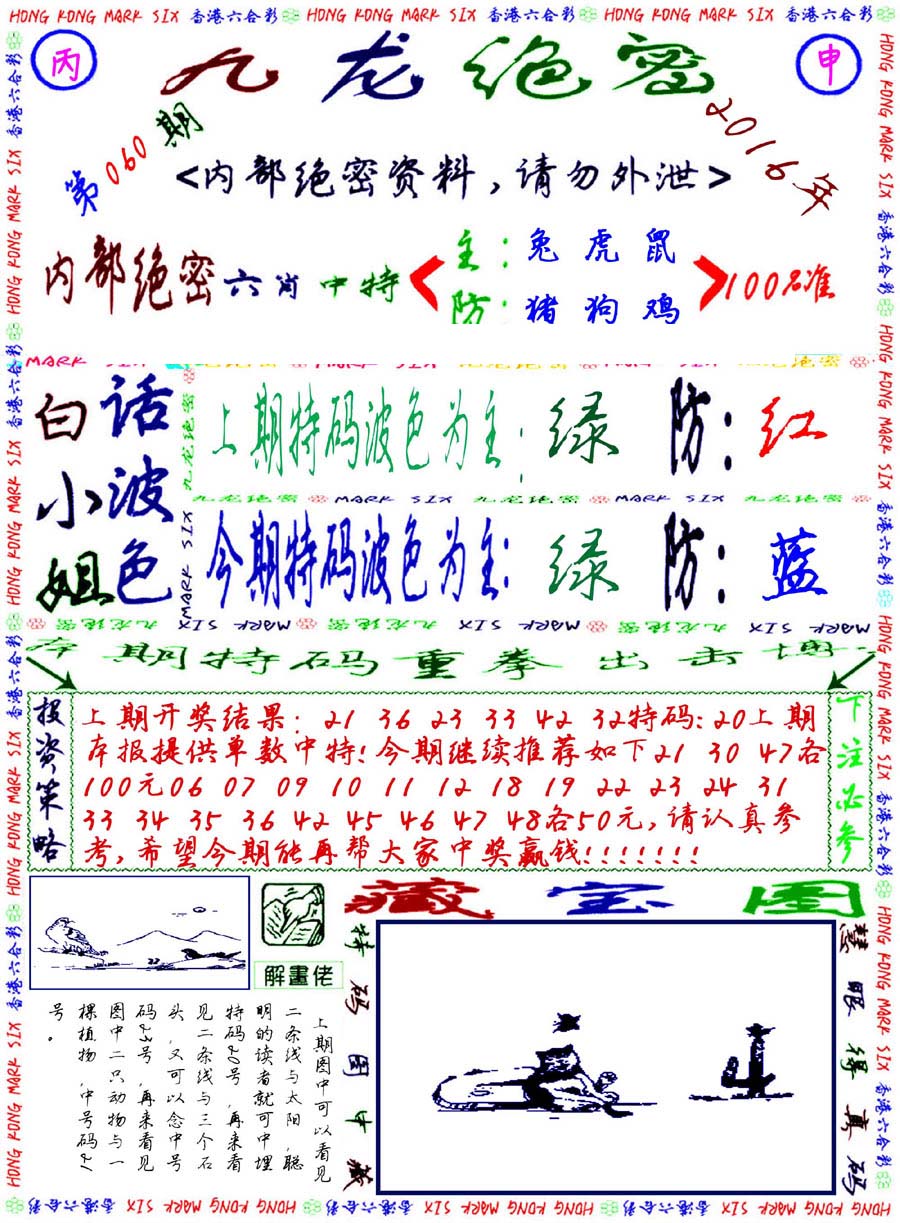 HONG KONG MARK SIX 香港六合彩 HONG KONG MARK SIX 香港六合彩 HONG KONG MARK SIX 香港六合彩
丙
九龙绝密
申
第060期
2016年
<内部绝密资料,请勿外泄>
内部绝密六肖中特
主:兔虎鼠
防:猪狗鸡
100%准
白小姐
话波色
上期特码波色为主:绿 防:红
九龙绝密 MARK SIX 九龙绝密 MARK SIX 九龙绝密
今期特码波色为主:绿 防:蓝
期特码重拳出击
投资策略
上期开奖结果: 21 36 23 33 42 32特码:20上期
本报提供单数中特!今期继续推荐如下21 30 47各
100元06 07 09 10 11 12 18 19 22 23 24 31
33 34 35 36 42 45 46 47 48各50元,请认真参
考,希望今期能再帮大家中奖赢钱!!!!!!!
下注必参
解畫佬
藏宝图
上期图中可以看见
二条线与太阳,聪
明的读者就可中埋
特码20号,再来看
见二条线与三个石
头,又可以念中号
码23号,再来看见
图中二只动物与一
棵植物,中号码21
号。
特码图中藏
慧眼得真码